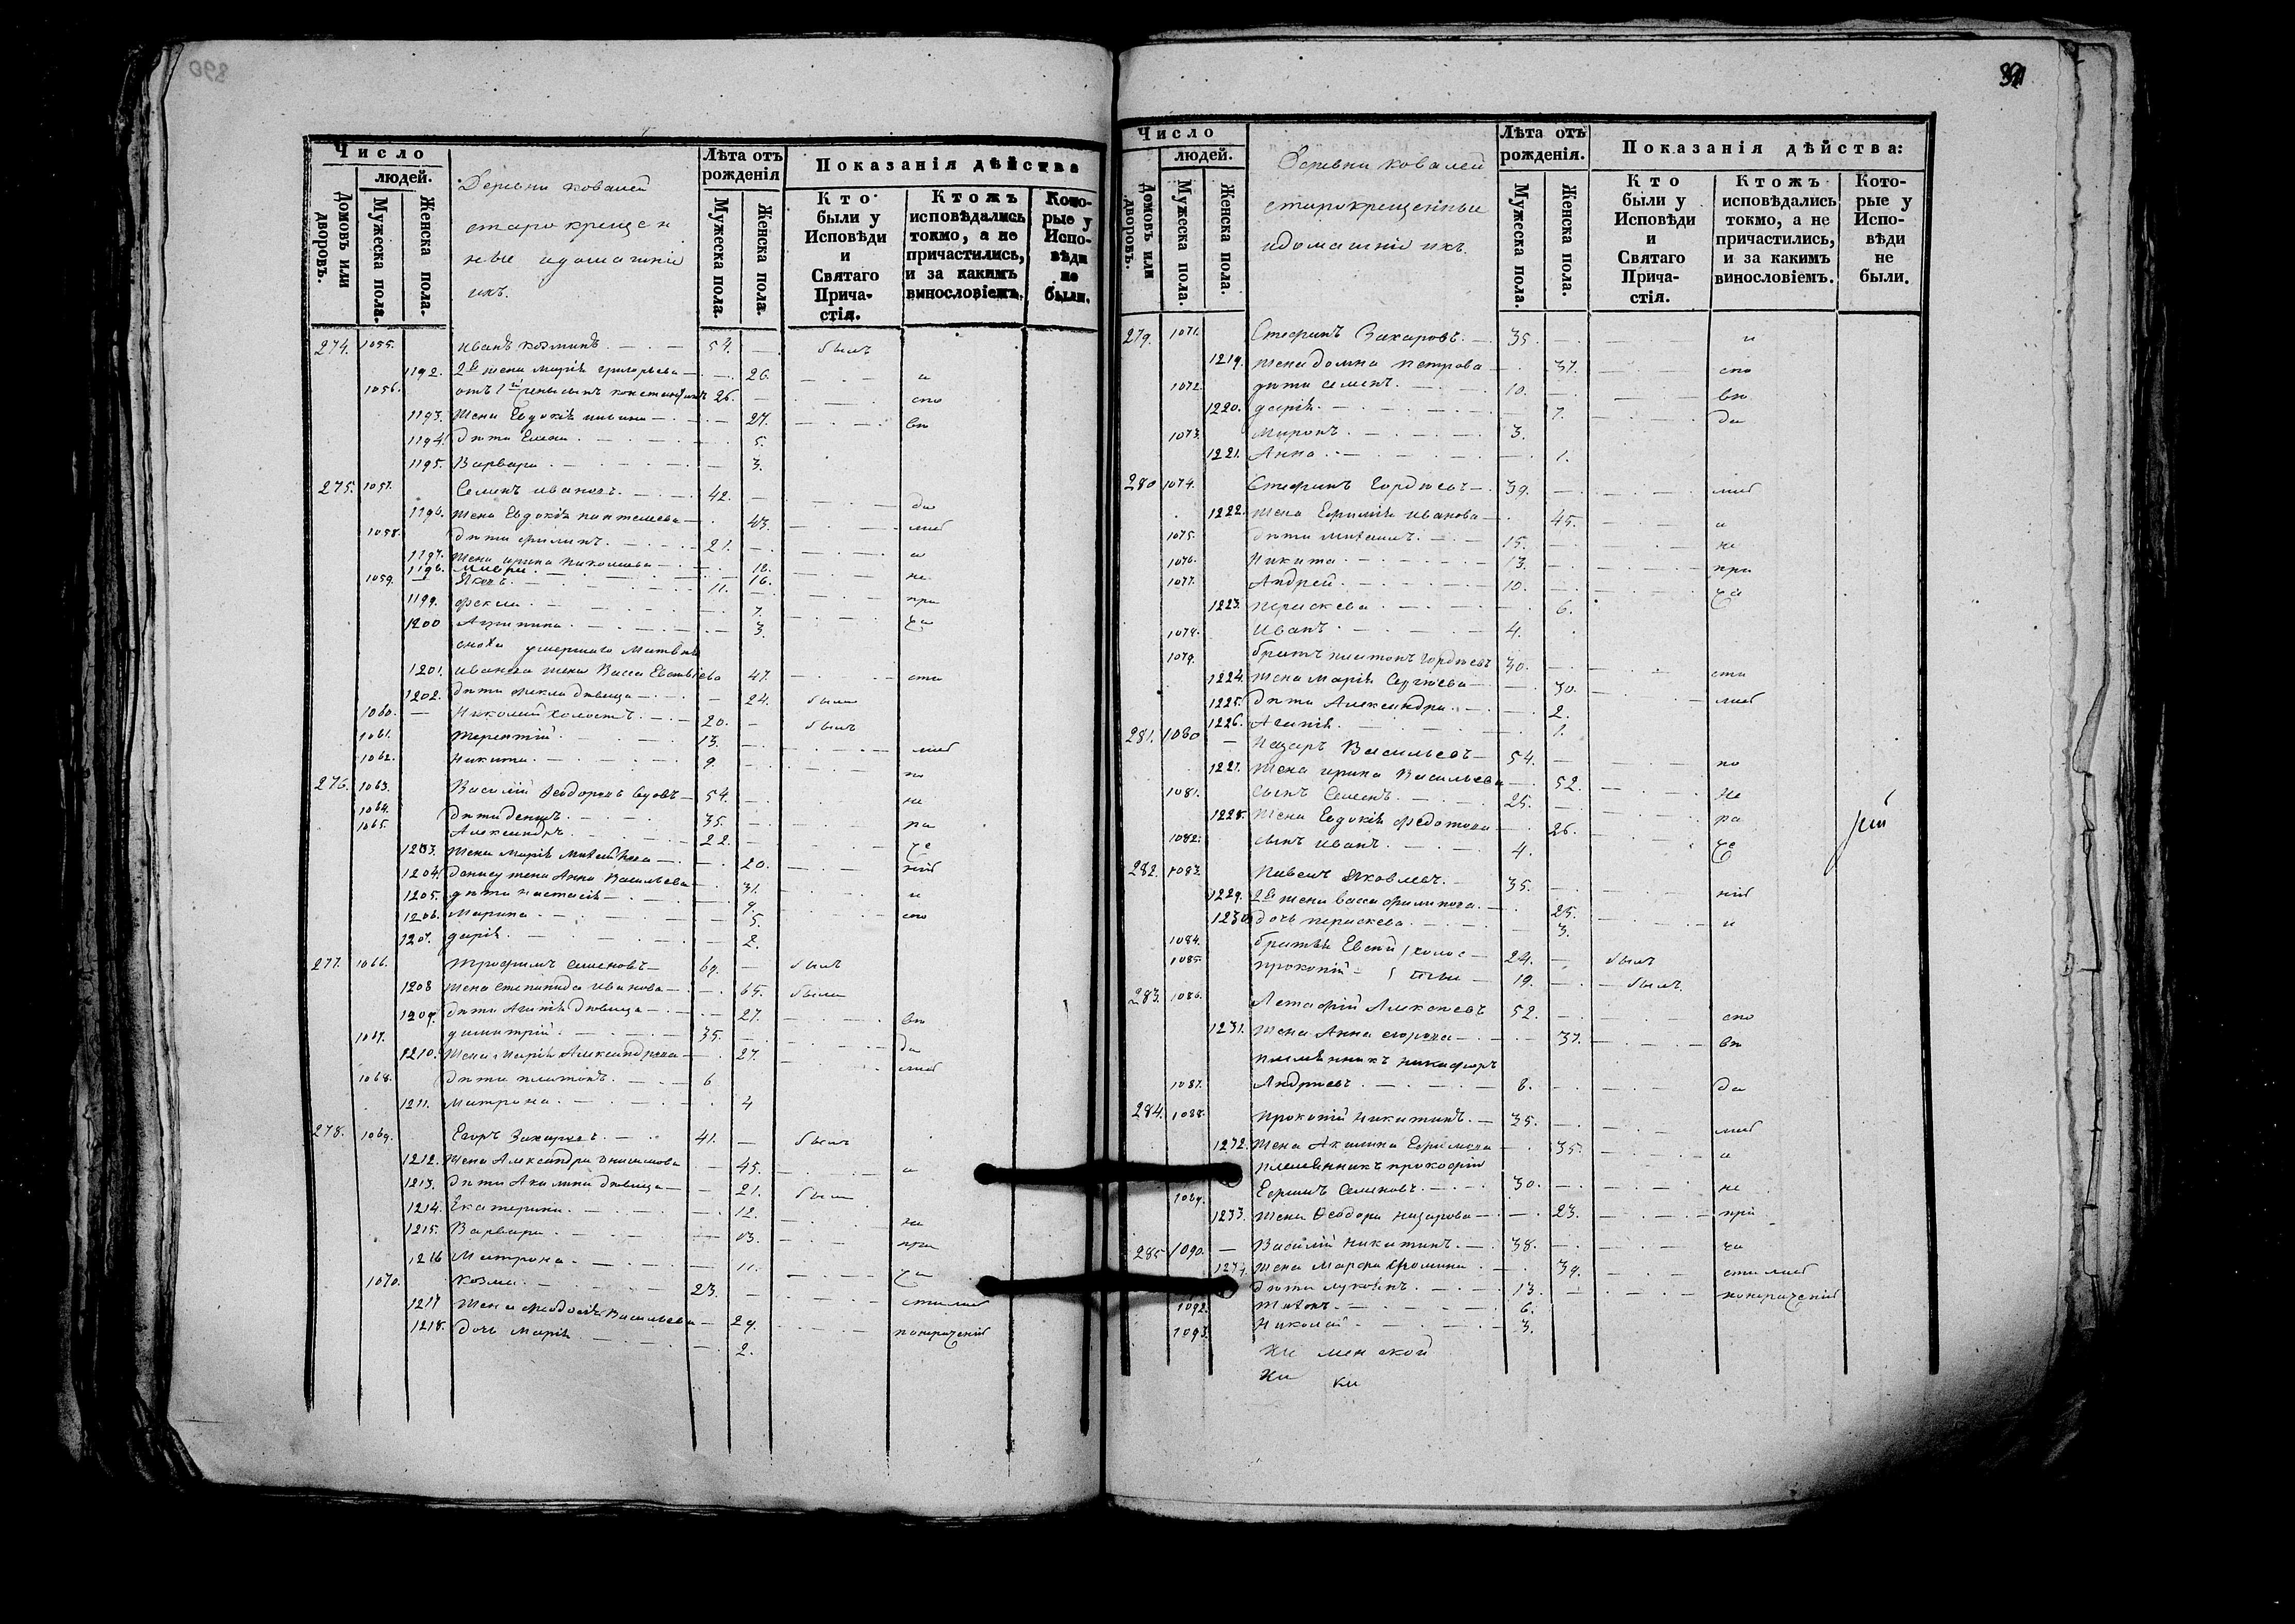 890
Число
людей.
Домовъ или дворовъ.
Мужеска пола.
Женска пола.
Деревни ковалей
старокрещен
ные идомашнiи
ихъ.
Лѣта отъ рожденія
Мужеска пола.
Женска пола.
Показанія дѣйства
Кто были у Исповѣди и Святаго Причастія.
Ктожъ исповѣдались токмо, а не причастились, и за какимъ винословіемъ.
Которые у Исповѣди не были.
274. 1055. иванъ козминъ 54. былъ
1192. 2я жена марія григорьева 26. и
1056. отъ 1й жены сынъ константинъ 26. спо
1193. жена Евдокія 27. вѣ
1194. дѣти Елена 5.
1195. Варвара 3.
275. 1057. Семенъ ивановъ 42. да
1196. жена Евдокія пантелеева 43. лись
1058. дѣти филипъ 21. а
1197. жена ирина николаева 18.
1198. 16. не
1059. Яковъ 11. при
1199. фекла 7. ча
1200 Агрипина 3.
сноха умершаго Матвѣя
1201. иванова жена Васса Евстафіева 47. сти
1202. дѣти фекла дѣвица 24. была
1060. Николай холостъ 20. былъ
1061. терентій 13. лись
1062. никита 9. по
276. 1063. Василій Ѳеодоровъ 54. не
1064. дѣти денисъ 35. ра
1065. Александръ 22. че
1203. жена марія 20. нію
1204. денису жена Анна Васильева 31. и
1205. дѣти настасія 9. спо
1206. Марина 5.
1207. дарія 2.
277. 1066. трофимъ семеновъ 69. былъ
1208 жена степанида иванова 65. была
1209. дѣти Агапія дѣвица 27. вѣ
1067. димитрій 35. да
1210. жена Марія Александрова 27. лись
1068. дѣти платонъ 6
1211. матрона 4
278. 1069. Егоръ Захаровъ 41. былъ
1212. жена Александра 45. а
1213. дѣти Акилина дѣвица 21. была
1214. Екатерина 12. не
1215. Варвара 13. при
1216 Матрона 11. ча
1070. козма 23. стились
1217 жена феодосія Васильева 29. понерачению
1218. дочь марія 2.
Число
людей.
Домовъ или дворовъ.
Мужеска пола.
Женска пола.
Деревни ковалей
старокрещенные
идомашніи ихъ.
Лѣта отъ рожденія.
Мужеска пола.
Женска пола.
Показанія дѣйства:
Кто были у Исповѣди и Святаго Причастія.
Ктожъ исповѣдались токмо, а не причастились, и за какимъ винословіемъ.
Которые у Исповѣди не были.
279. 1071. Стефанъ Захаровъ 35. и
1219. жена домна петрова 37. спо
1072. дѣти семенъ 10. вѣ
1220. дарія 7. да
1073. миронъ 3.
1221. Анна 1.
280 1074. Стефанъ Гордѣевъ 39. лись
1222. жена Ефимія иванова 45. а
1075. дѣти михаилъ 15. не
1076. Никита 13. при
1077. Андрей 10. ча
1223. параскева 6.
1078. Иванъ 4.
1079. братъ платонъ гордѣевъ 30. сти
1224. жена Марія Сергѣева 30. лись
1225. дѣти Александра 2.
1226. Агапія 1.
281. 1080 Назаръ Васильевъ 54. по
1227. жена ирина Васильева 52. не
1081. сынъ Семенъ 25. ра
1228. жена Евдокія федотова 26. че
1082. сынъ иванъ 4.
282. 1083. Павелъ Яковлевъ 35. нію
1229. 2я жена васса филипова 25. и
1230 дочь параскева 3.
1084. братья Евсей холос 24. былъ
1085. прокопій тые 19. былъ
283. 1086. Алексѣевъ 52. спо
1231. жена Анна егорова 37. вѣ
племянникъ никифоръ
1087. Андреевъ 8. да
284. 1088. прокопій никитинъ 35. лись
1232. жена Акилина Ефимова 35. а
племянникъ прокофiя
1089. Ефимъ Семеновъ 30. не
1233. жена Ѳеодора назарова 23. при
285 1090. Василій никитинъ 38. ча
1234. жена Марфа фомина 39. стились
дѣти лукьянъ 13. понерачению
1092. тихонъ 6.
1093. Николай 3.